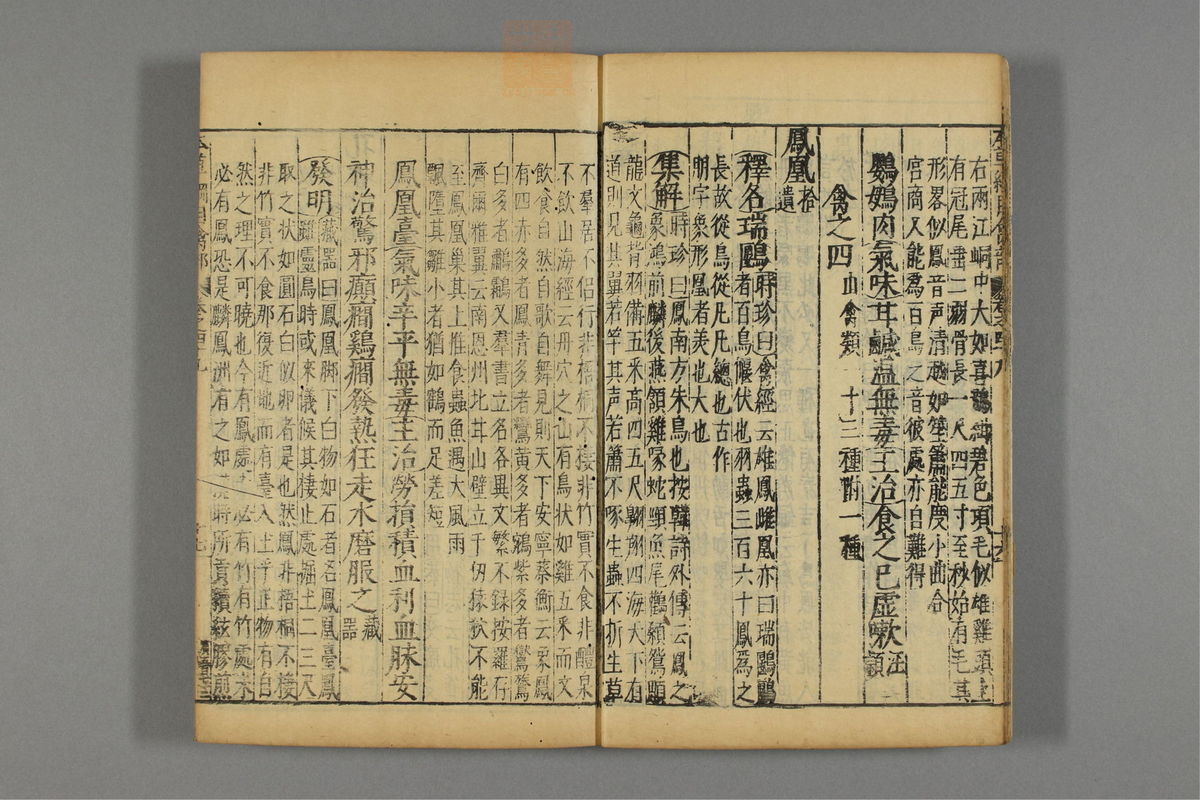 右兩江峒中大如喜鵲紺碧色項毛似雄雞頭上
有冠尾畫二弱骨長一尺四五寸至秒始有毛其
形畧似鳳音声清越如笙簫能度小曲合
宮商又能為百鳥之音彼處亦自難得
鸚䳇肉氣味甘鹹温無毒主治食之已虛嗽
禽之四山禽類 十三種附一種
鳳凰拾遺
釋名瑞鶠時珍曰禽經云雄鳳雌凰亦曰瑞鶠鶠
者百鳥偃伏也羽蟲三百六十鳳為之
長故從鳥從凡凡總也古作
朋字象形凰者美也大也
集解時珍曰鳳南方朱鳥也按韓詩外傳云鳳之
象鴻前麟後燕頷雞喙蛇頸魚尾鸛顙鴛顋
龍文龜背羽備五釆高四五尺翺翔四海天下有
道則見其翼若竿其声若簫不啄生蟲不折生草
不羣居不侶行非梧桐不棲非竹實不食非醴泉
不飲山海經云丹穴之山有鳥狀如雞五釆而文
飲食自然自歌自舞見則天下安寧蔡衡云象鳳
有四赤多者鳳青多者鸞黄多者鵷紫多者鸑鷟
白多者鸘鷞又羣書立名各異文繁不録按羅存
齋爾雅翼云南恩州北甘山壁立千仞猿狄不能
至鳳凰巢其上惟食蟲魚遇大風雨
飄墮其雛小者猶如鶴而足差短
鳳凰臺氣味辛平無毒主治勞損積血利血脉安
神治驚邪癲癇鷄癇發熱狂走水磨服之藏器
發明藏器曰鳳凰脚下白物如石者名鳳凰臺鳳
雖靈鳥時或來儀候其棲止處掘土二三尺
取之状如圓石白似卵者是也然鳳非梧桐不棲
非竹實不食那復近地而有臺入土乎正物有自
然之理不可曉也今有鳳處未必有竹有竹處未
必有鳳恐是麟鳳洲有之如時所貢續絃膠煎